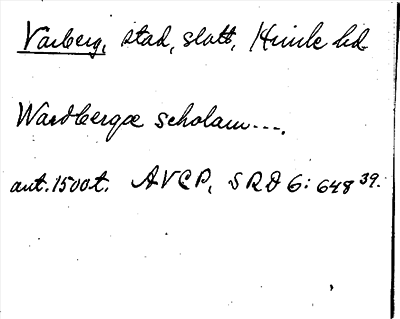 Varberg, stad, slott, Himle hd
Wardbergæ scholam---.
ant. 1500t. AVCP, SRD 6: 648 39.